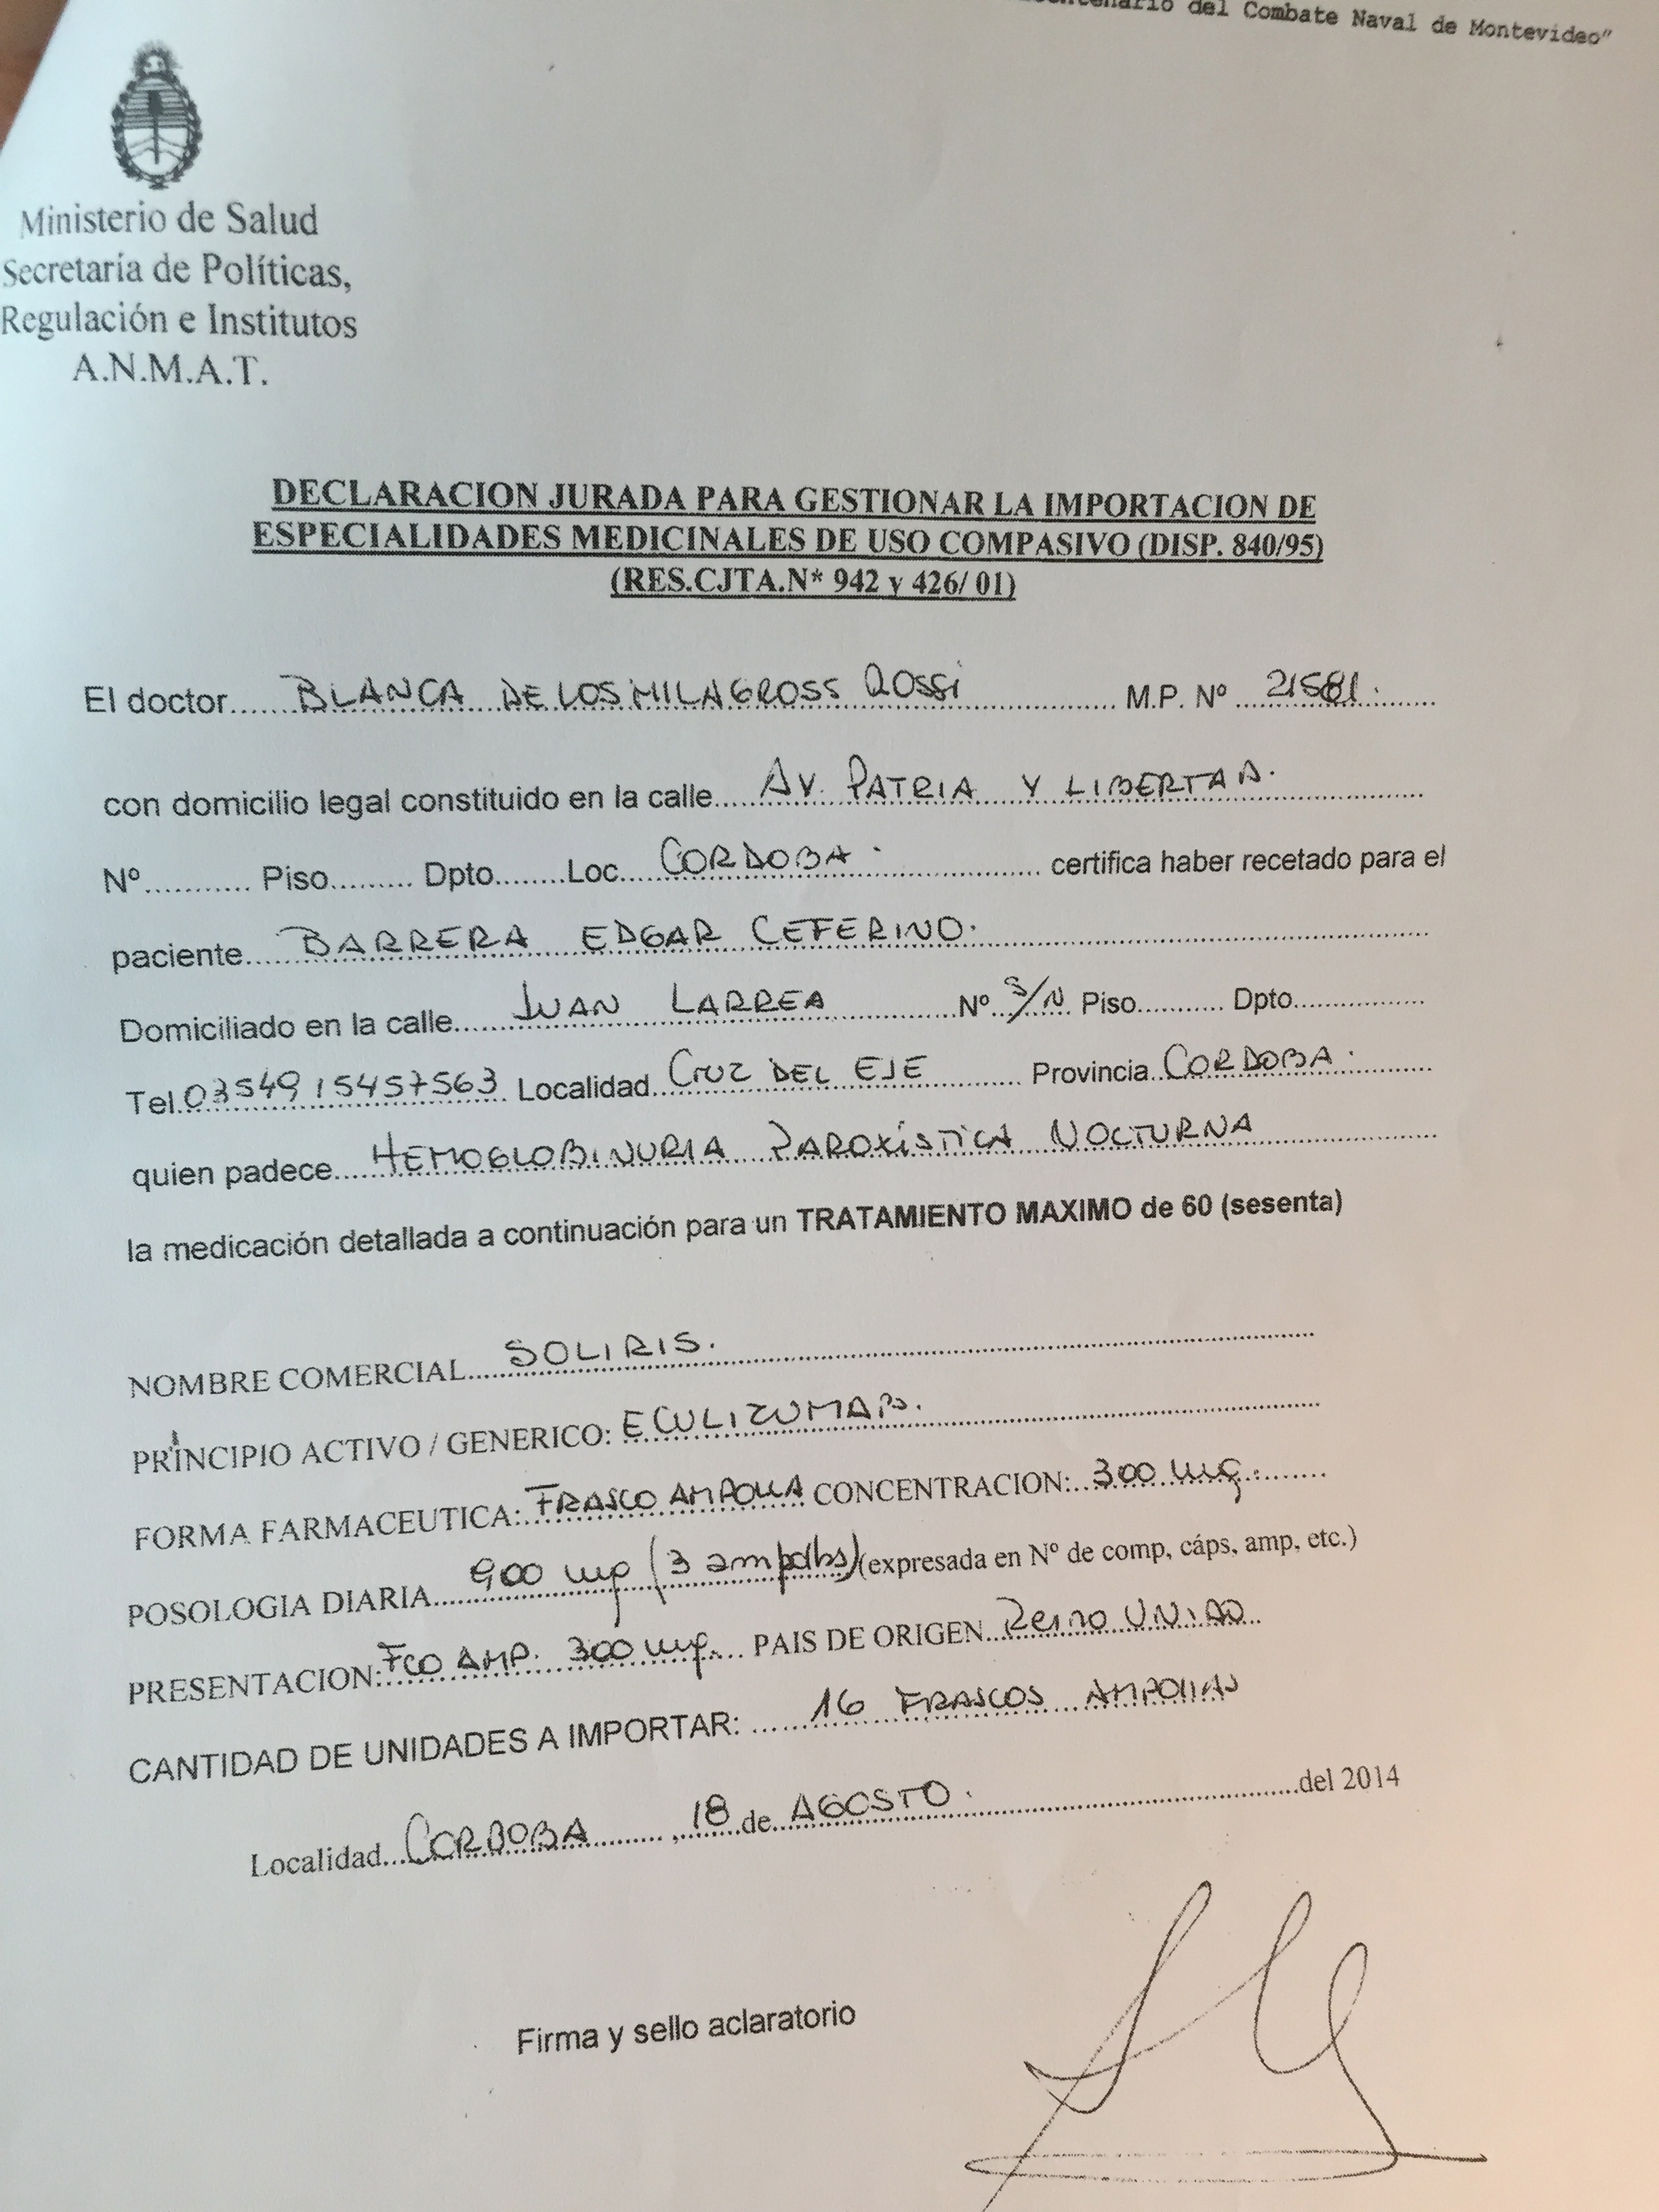 del Combate Naval de Montevideo"
Ministerio de Salud
Secretaría de Políticas,
Regulación e Institutos
A.N.M.A.T.
DECLARACION JURADA PARA GESTIONAR LA IMPORTACION DE
ESPECIALIDADES MEDICINALES DE USO COMPASIVO (DISP. 840/95)
(RES.CJTA.N* 942 y 426/ 01)
El doctor......BLANCA DE LOS MILAGROSS ROSSi.................. M.P. Nº ...21581...........
con domicilio legal constituido en la calle.....AV. PATRIA Y LIBERTAD...................
Nº............ Piso......... Dpto........Loc....CORDOBA.................. certifica haber recetado para el
paciente......BARRERA EDGAR CEFERINO...........................................
Domiciliado en la calle......JUAN LARREA..............Nº..S/N.. Piso........... Dpto.................
Tel.03549 15457563. Localidad..CRUZ DEL EJE........... Provincia..CORDOBA...........
quien padece.....HEMOGLOBINURIA PAROXíSTICA NOCTURNA......................
la medicación detallada a continuación para un TRATAMIENTO MAXIMO de 60 (sesenta)
NOMBRE COMERCIAL....SOLIRIS...........................................................
PRINCIPIO ACTIVO / GENERICO: ECULIZUMAB............................................
FORMA FARMACEUTICA:.FRASCO AMPOLLA CONCENTRACION:..300 mg..........
POSOLOGIA DIARIA.....900 mg (3 ampollas)(expresada en Nº de comp, cáps, amp, etc.)
PRESENTACION:FCO AMP. 300 mg.... PAIS DE ORIGEN..Reino UNIDO..
CANTIDAD DE UNIDADES A IMPORTAR: .....16 FRASCOS AMPOLLAS
Localidad...CORDOBA.......... ,..18..de..AGOSTO..........................................del 2014
Firma y sello aclaratorio